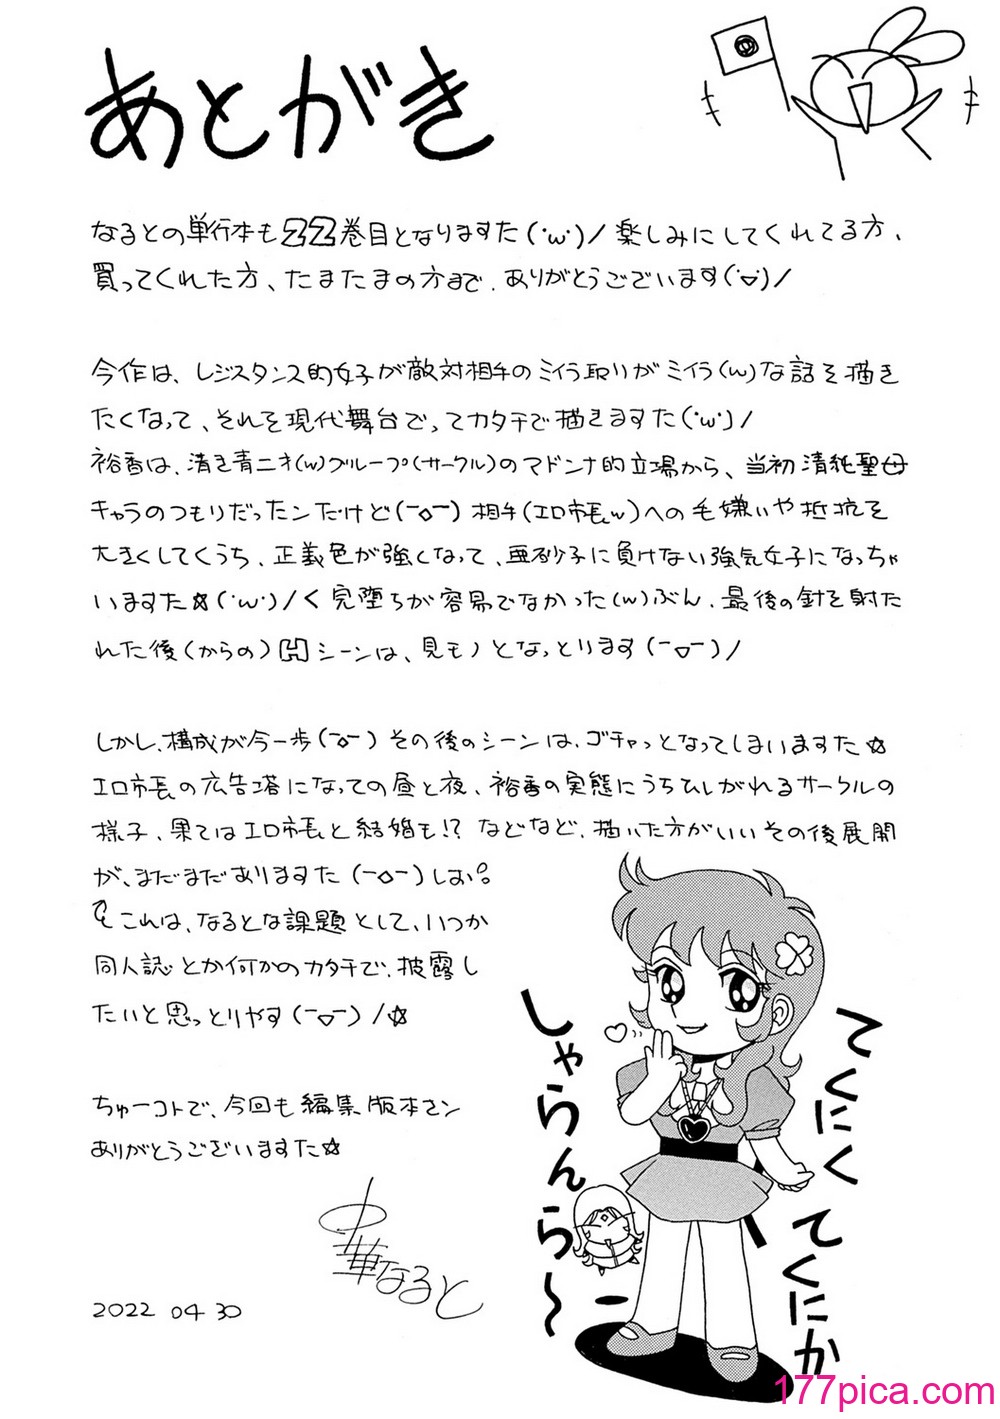 あとがき
なるとの単行本も22巻目となりますた(・ω・)/ 楽しみにしてくれてる方、
買ってくれた方、たまたまの方まで、ありがとうございます(・▽・)/
今作は、レジスタンス的女子が敵対相手のミイラ取りがミイラ(w)な話を描き
たくなって、それを現代舞台でってカタチで描きますた(・ω・)/
裕香は、清き青二才(w)グループ(サークル)のマドンナ的立場から、当初清純聖母
キャラのつもりだったンだけど(ー◇ー)相手(エロ市長w)への毛嫌いや抵抗を
大きくしてくうち、正義色が強くなって、亜砂子に負けない強気女子になっちゃ
いますた☆(・ω・)/く完堕ちが容易でなかった(w)ぶん、最後の針を射た
れた後(からの)Hシーンは、見モノとなっとります(ー▽ー)/
しかし、構成が今一歩(ー◇ー)その後のシーンは、ゴチャっとなってしまいますた☆
エロ市長の広告塔になっての昼と夜、裕香の実態にうちひしがれるサークルの
様子、果てはエロ市長と結婚も!? などなど、描いた方がいいその後展開
が、まだまだありますた(ー◇ー)しお。
これは、なるとな課題として、いつか
同人誌とか何かのカタチで、披露し
たいと思っとりやす(ー▽ー)/☆
ちゅーコトで、今回も編集版本サン
ありがとうございますた☆
中華なると
2022 04 30
てくにく てくにか
しゃらんら〜
177pica.com